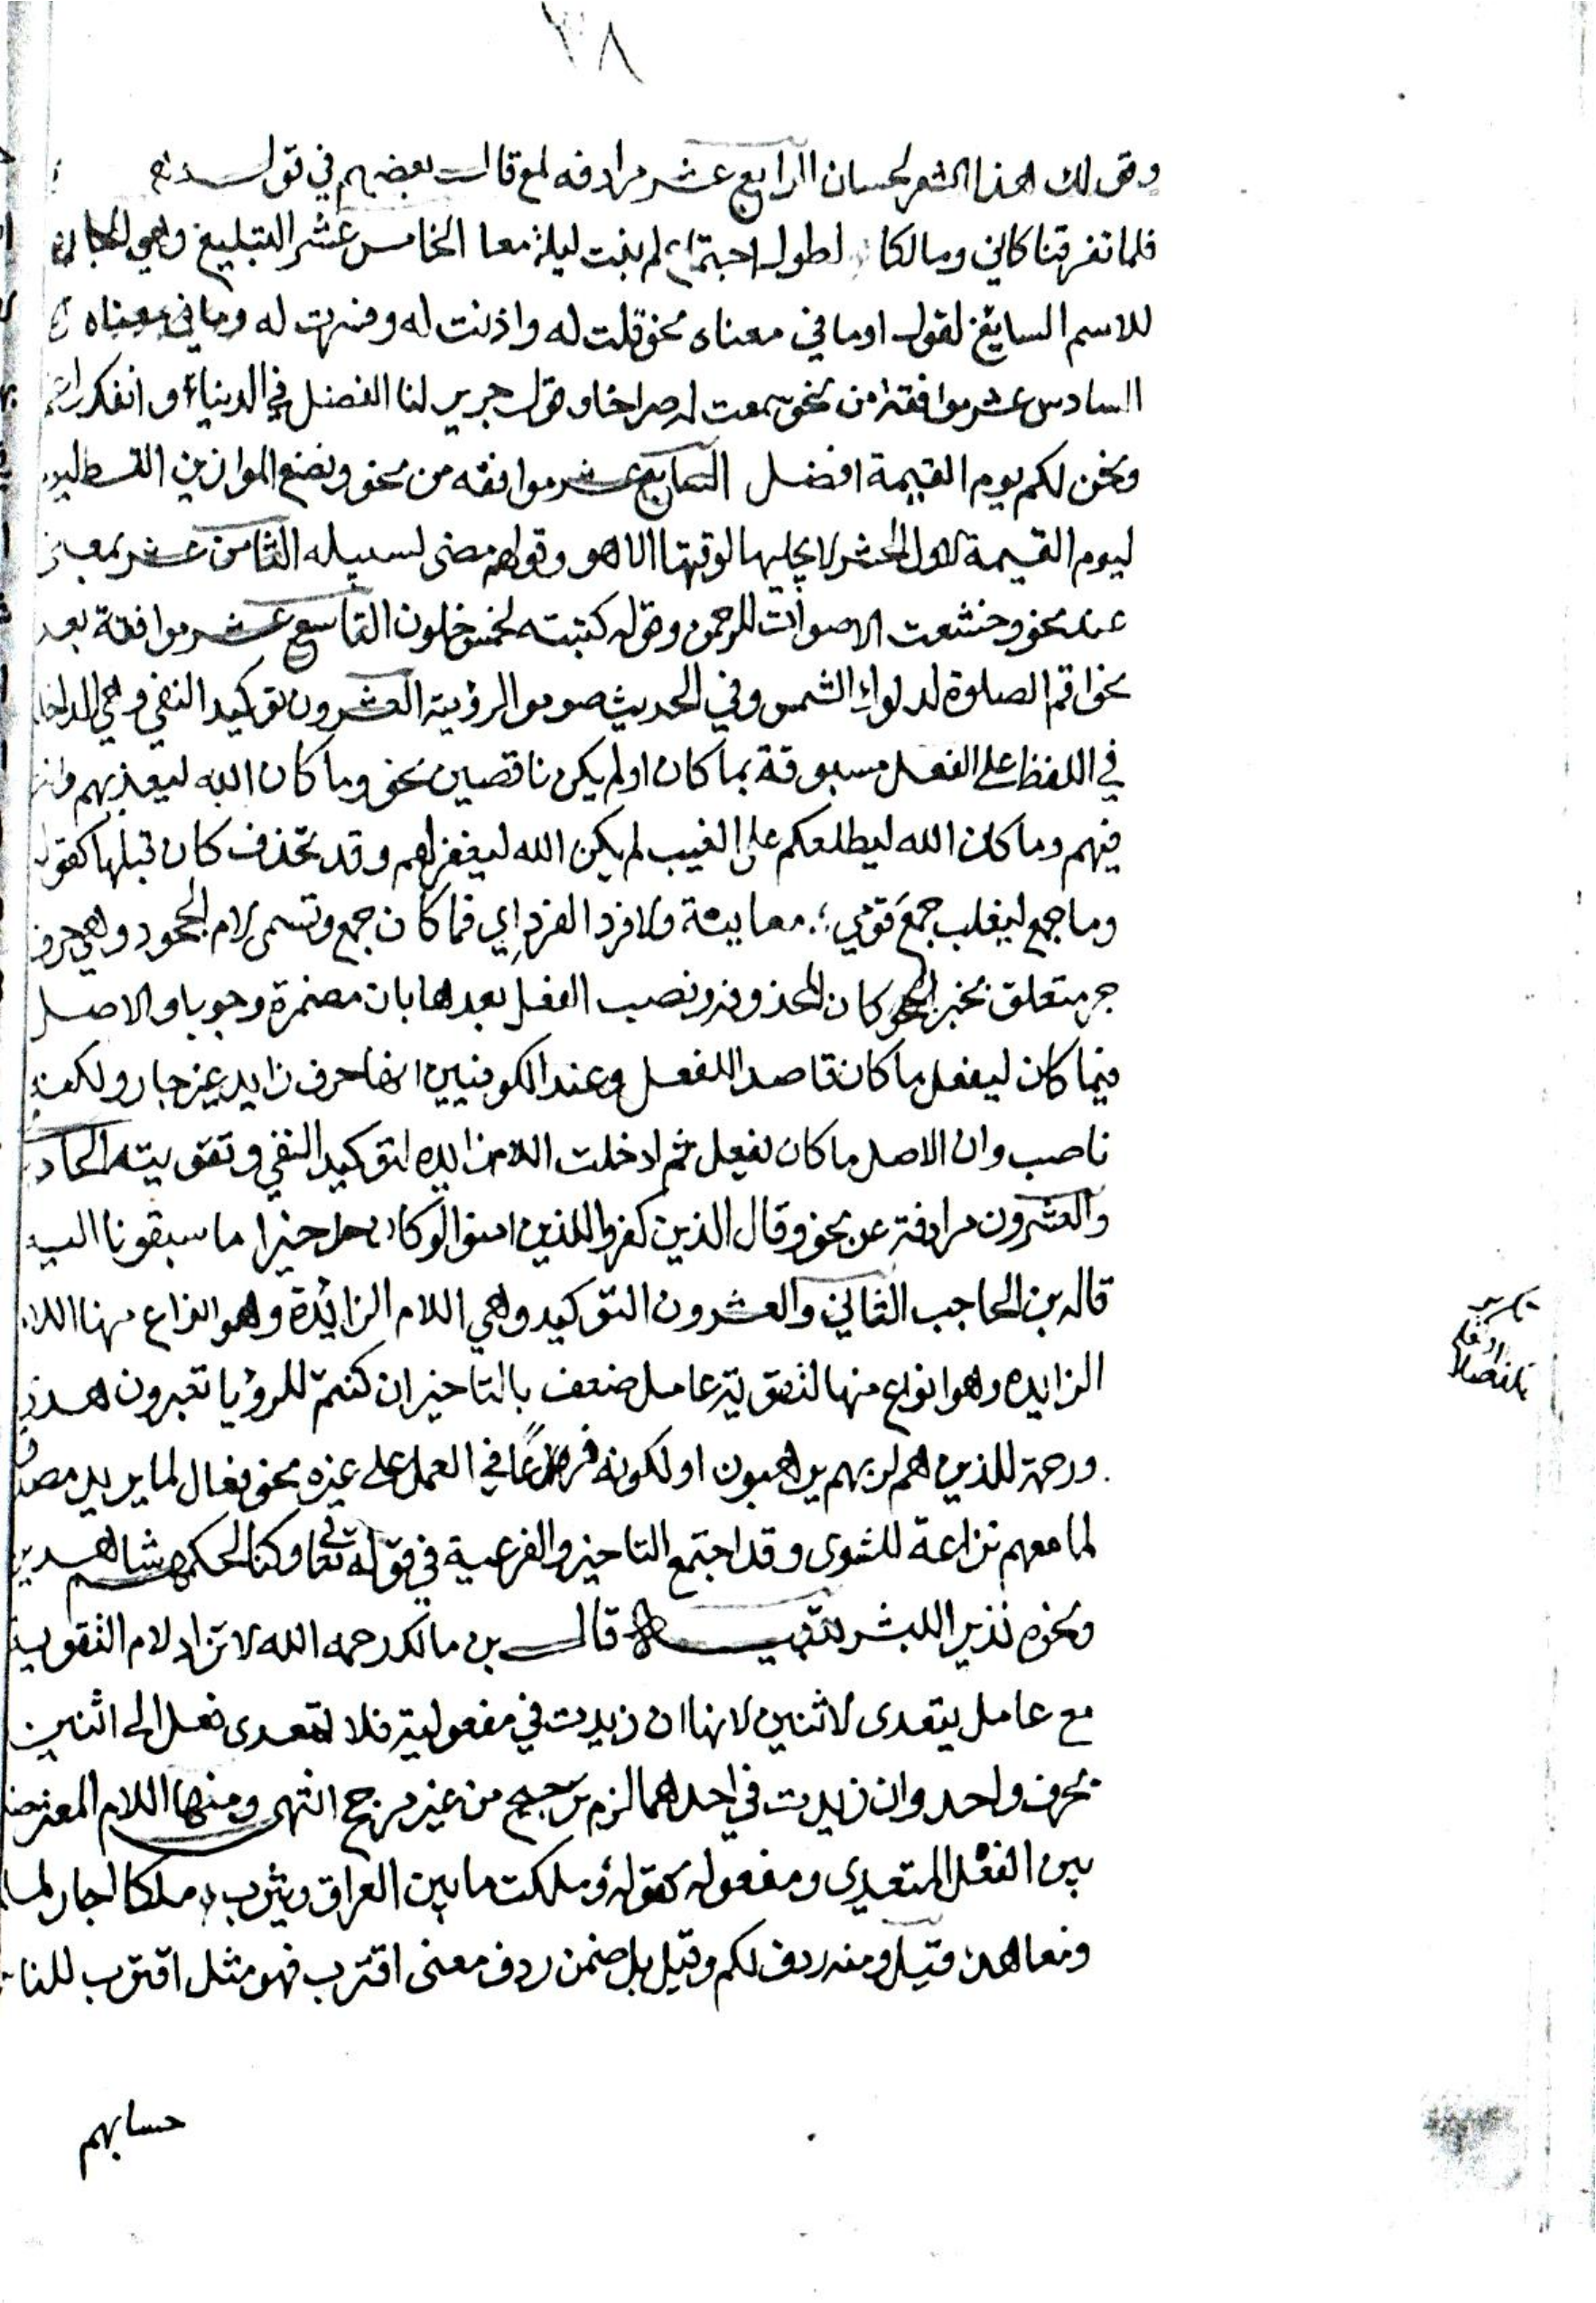 ٣٨
وقولك هذا الشعر لحسان الرابع عشر مرادفه لمع قال بعضهم في قوله
فلما تفرقنا كاني ومالكا لطول اجتماع لم نبت ليلة معا الخامس عشر التبليغ وهي الجاره
للاسم السايغ لقول او ما في معناه نحو قلت له واذنت له وفسرت له وما في معناه
السادس عشر موافقة من نحو سمعت له صراخا وقول جرير لنا الفضل في الدنيا وانفك راغم
ونحن لكم يوم القيمة افضل السابع عشر موافقه من نحو ونضع الموازين القسط ليوم
ليوم القيمة لاول الحشر لا يجليها لوقتها الا هو وقولهم مضى لسبيله الثامن عشر بمعنى
عند نحو وخشعت الاصوات للرحمن وقوله كتبته لخمس خلون التاسع عشر موافقة بعد
نحو اقم الصلوة لدلوك الشمس وفي الحديث صوموا لرؤيته العشرون توكيد النفي وهي الداخلة
في اللفظ على الفعل مسبوقة بما كان او لم يكن ناقصين نحو وما كان الله ليعذبهم وانت
فيهم وما كان الله ليطلعكم على الغيب لم يكن الله ليغفر لهم وقد تحذف كان قبلها كقوله
وما جمع ليغلب جمع قومي ؛ ولا فرد الفرد اي فما كان جمع وتسمى لام الجحود وهي حرف
جر متعلق بخبر كان المحذوف ونصب الفعل بعدها بان مضمرة وجوبا والاصل
فيما كان ليفعل ما كان قاصدا للفعل وعند الكوفيين انها حرف زايد غير جار ولكنه
ناصب وان الاصل ما كان يفعل ثم ادخلت اللام زايده لتوكيد النفي وتقويته الحادي
والعشرون مرادفة عن نحو وقال الذين كفروا للذين امنوا لو كان خيرا ما سبقونا اليه
قاله بن الحاجب الثاني والعشرون التوكيد وهي اللام الزائدة وهو انواع منها اللام
الزايده وهو انواع منها لتقوية عامل ضعف بالتاخير ان كنتم للرؤيا تعبرون هدى
ورحمة للذين هم لربهم يرهبون او لكونه فرعًا في العمل على غيره نحو فعال لما يريد مصدقا
لما معهم نزاعة للشوى وقد اجتمع التاخير والفرعية في قوله تعا وكنا لحكمهم شاهدين
ونحوه نذيرا للبشر تنبيه قال بن مالك رحمه الله لا تزاد لام التقوية
مع عامل يتعدى لاثنين لانها ان زيدت في مفعوليه فلا يتعدى فعل الى اثنين
بحرف واحد وان زيدت في احدهما لزم ترجيح من غير مرجح انتهى ومنها اللام المعترضة
بين الفعل المتعدي ومفعوله كقوله وملكت ما بين العراق ويثرب ملكا اجار لمسلم
ومعاهد قيل ومنه ردف لكم وقيل بل ضمن ردف معنى اقترب فهو مثل اقترب للناس
حسابهم